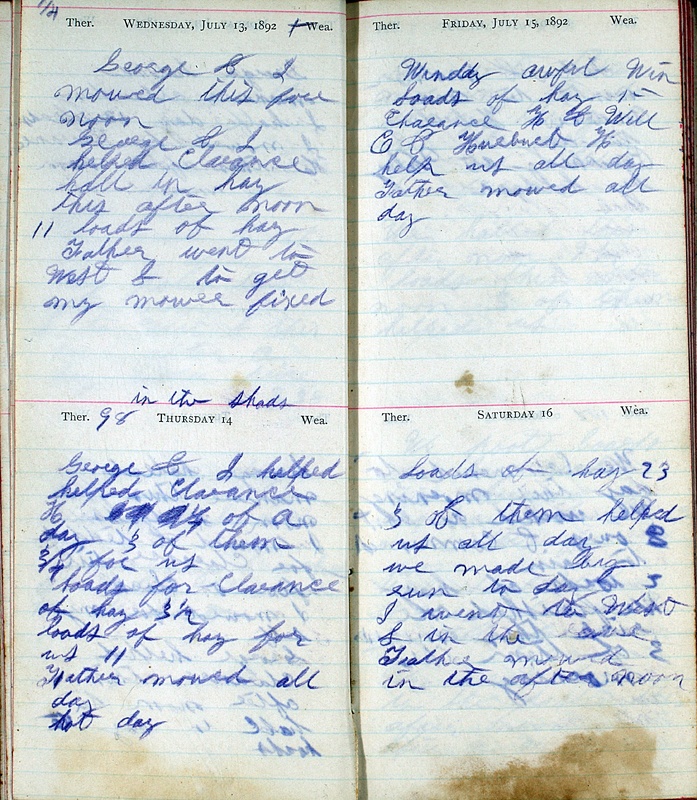 Ther. WEDNESDAY, JULY 13, 1892 Wea.
George & I
mowed this fore
noon
George & I
helped Clarance
hall in hay
this after noon
11 loads of hay
Father went to
West S to get
my mower fixed
in the shads
Ther. 98 THURSDAY 14 Wea.
George & I helped
helped Clarance
H of a
day 3 of them
3/4 for us
loads for Clarance
of hay 3 1/2
loads of hay for
us 11
Father mowed all
day
hot day
Ther. FRIDAY, JULY 15, 1892 Wea.
Winddy awful Win
Loads of hay 15
Charance H & Will
C C H
help us all day
Father mowed all
day
Ther. SATURDAY 16 Wea.
Loads of hay 23
3 of them helped
us all day
we made big
run to day
I went to West
S in the eave
Father mowed
in the after noon